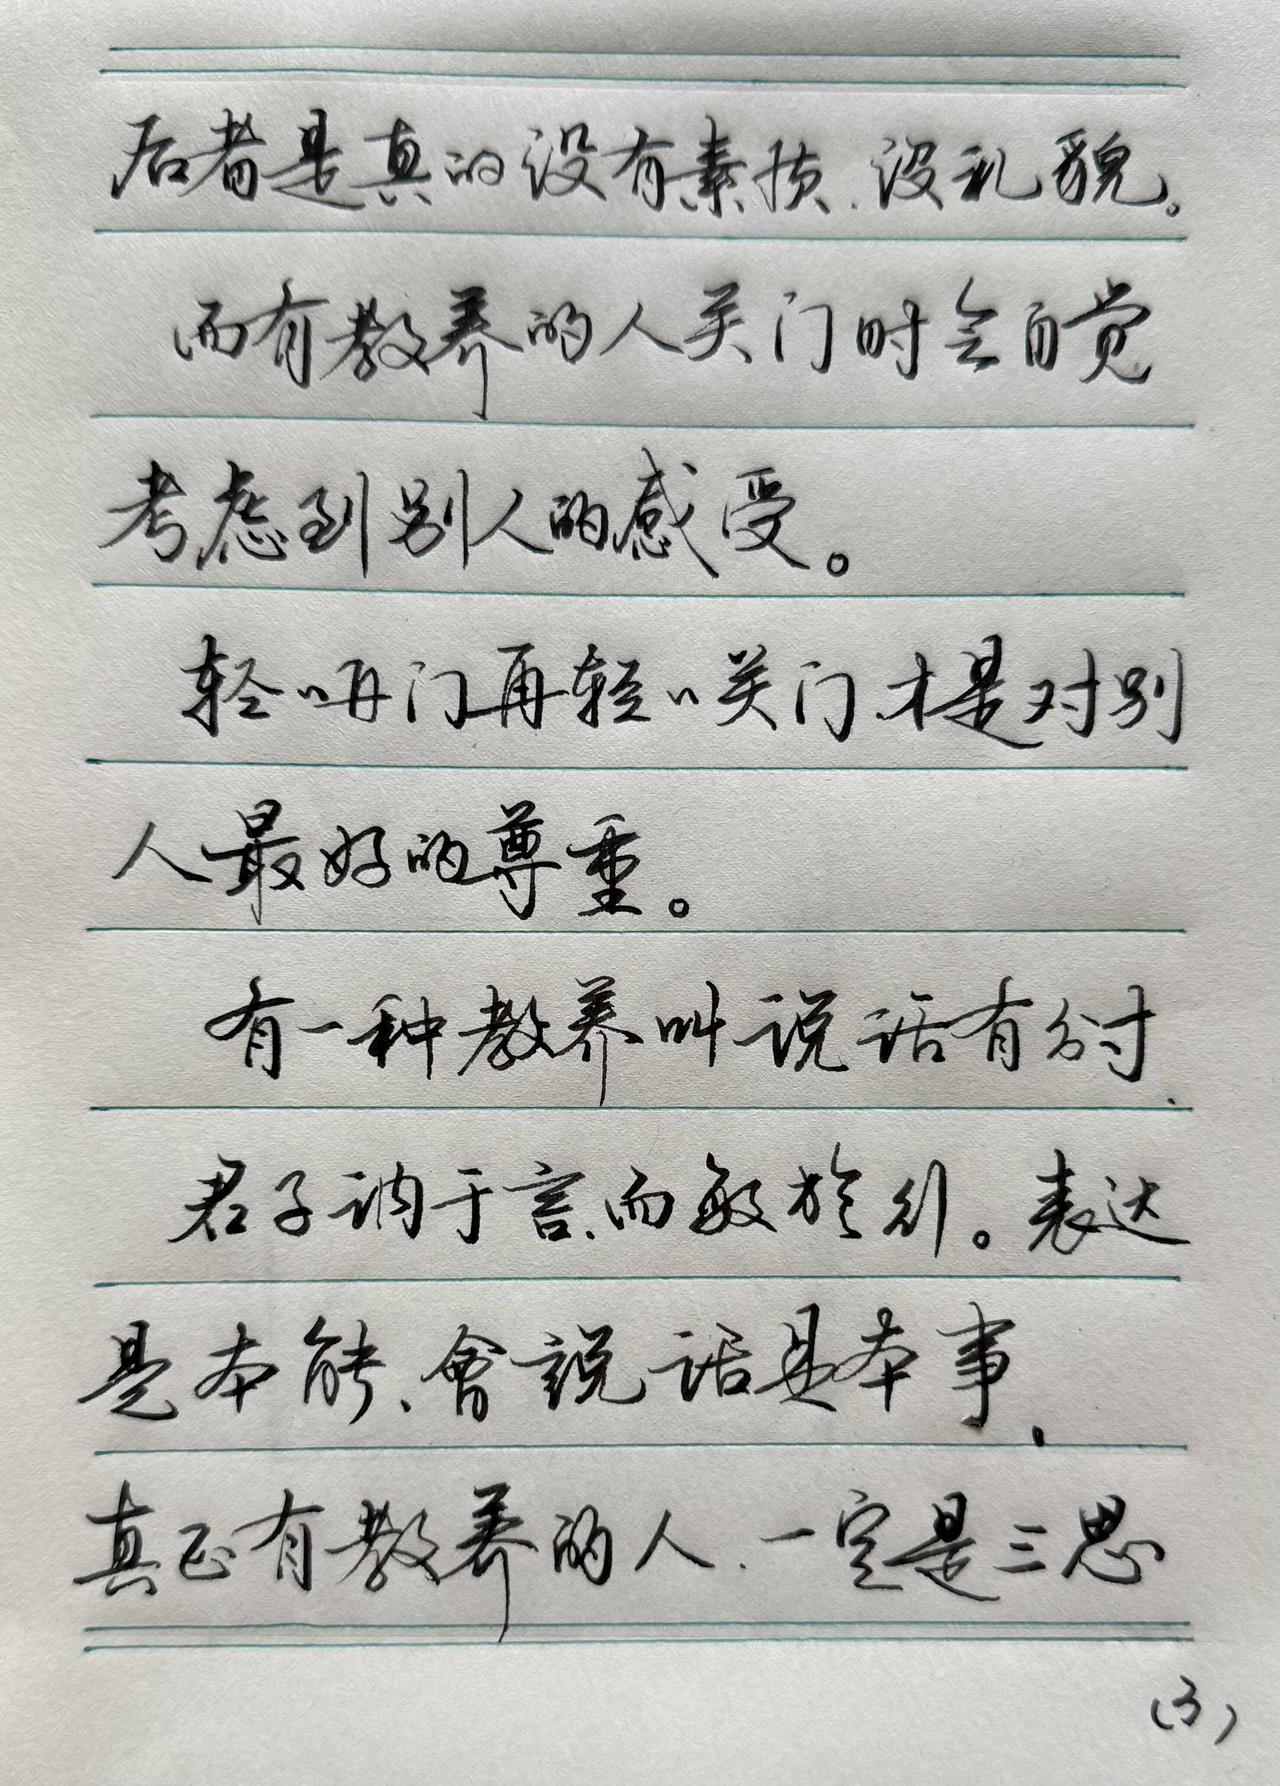 后者是真的没有素质、没礼貌。
而有教养的人关门时会自觉
考虑到别人的感受。
轻明门再轻关门、才是对别
人最好的尊重。
有一种教养叫说话有分寸、
君子讷于言、而敏於行。表达
是本能、會説话是本事、
真正有教养的人、一定是三思
(3)